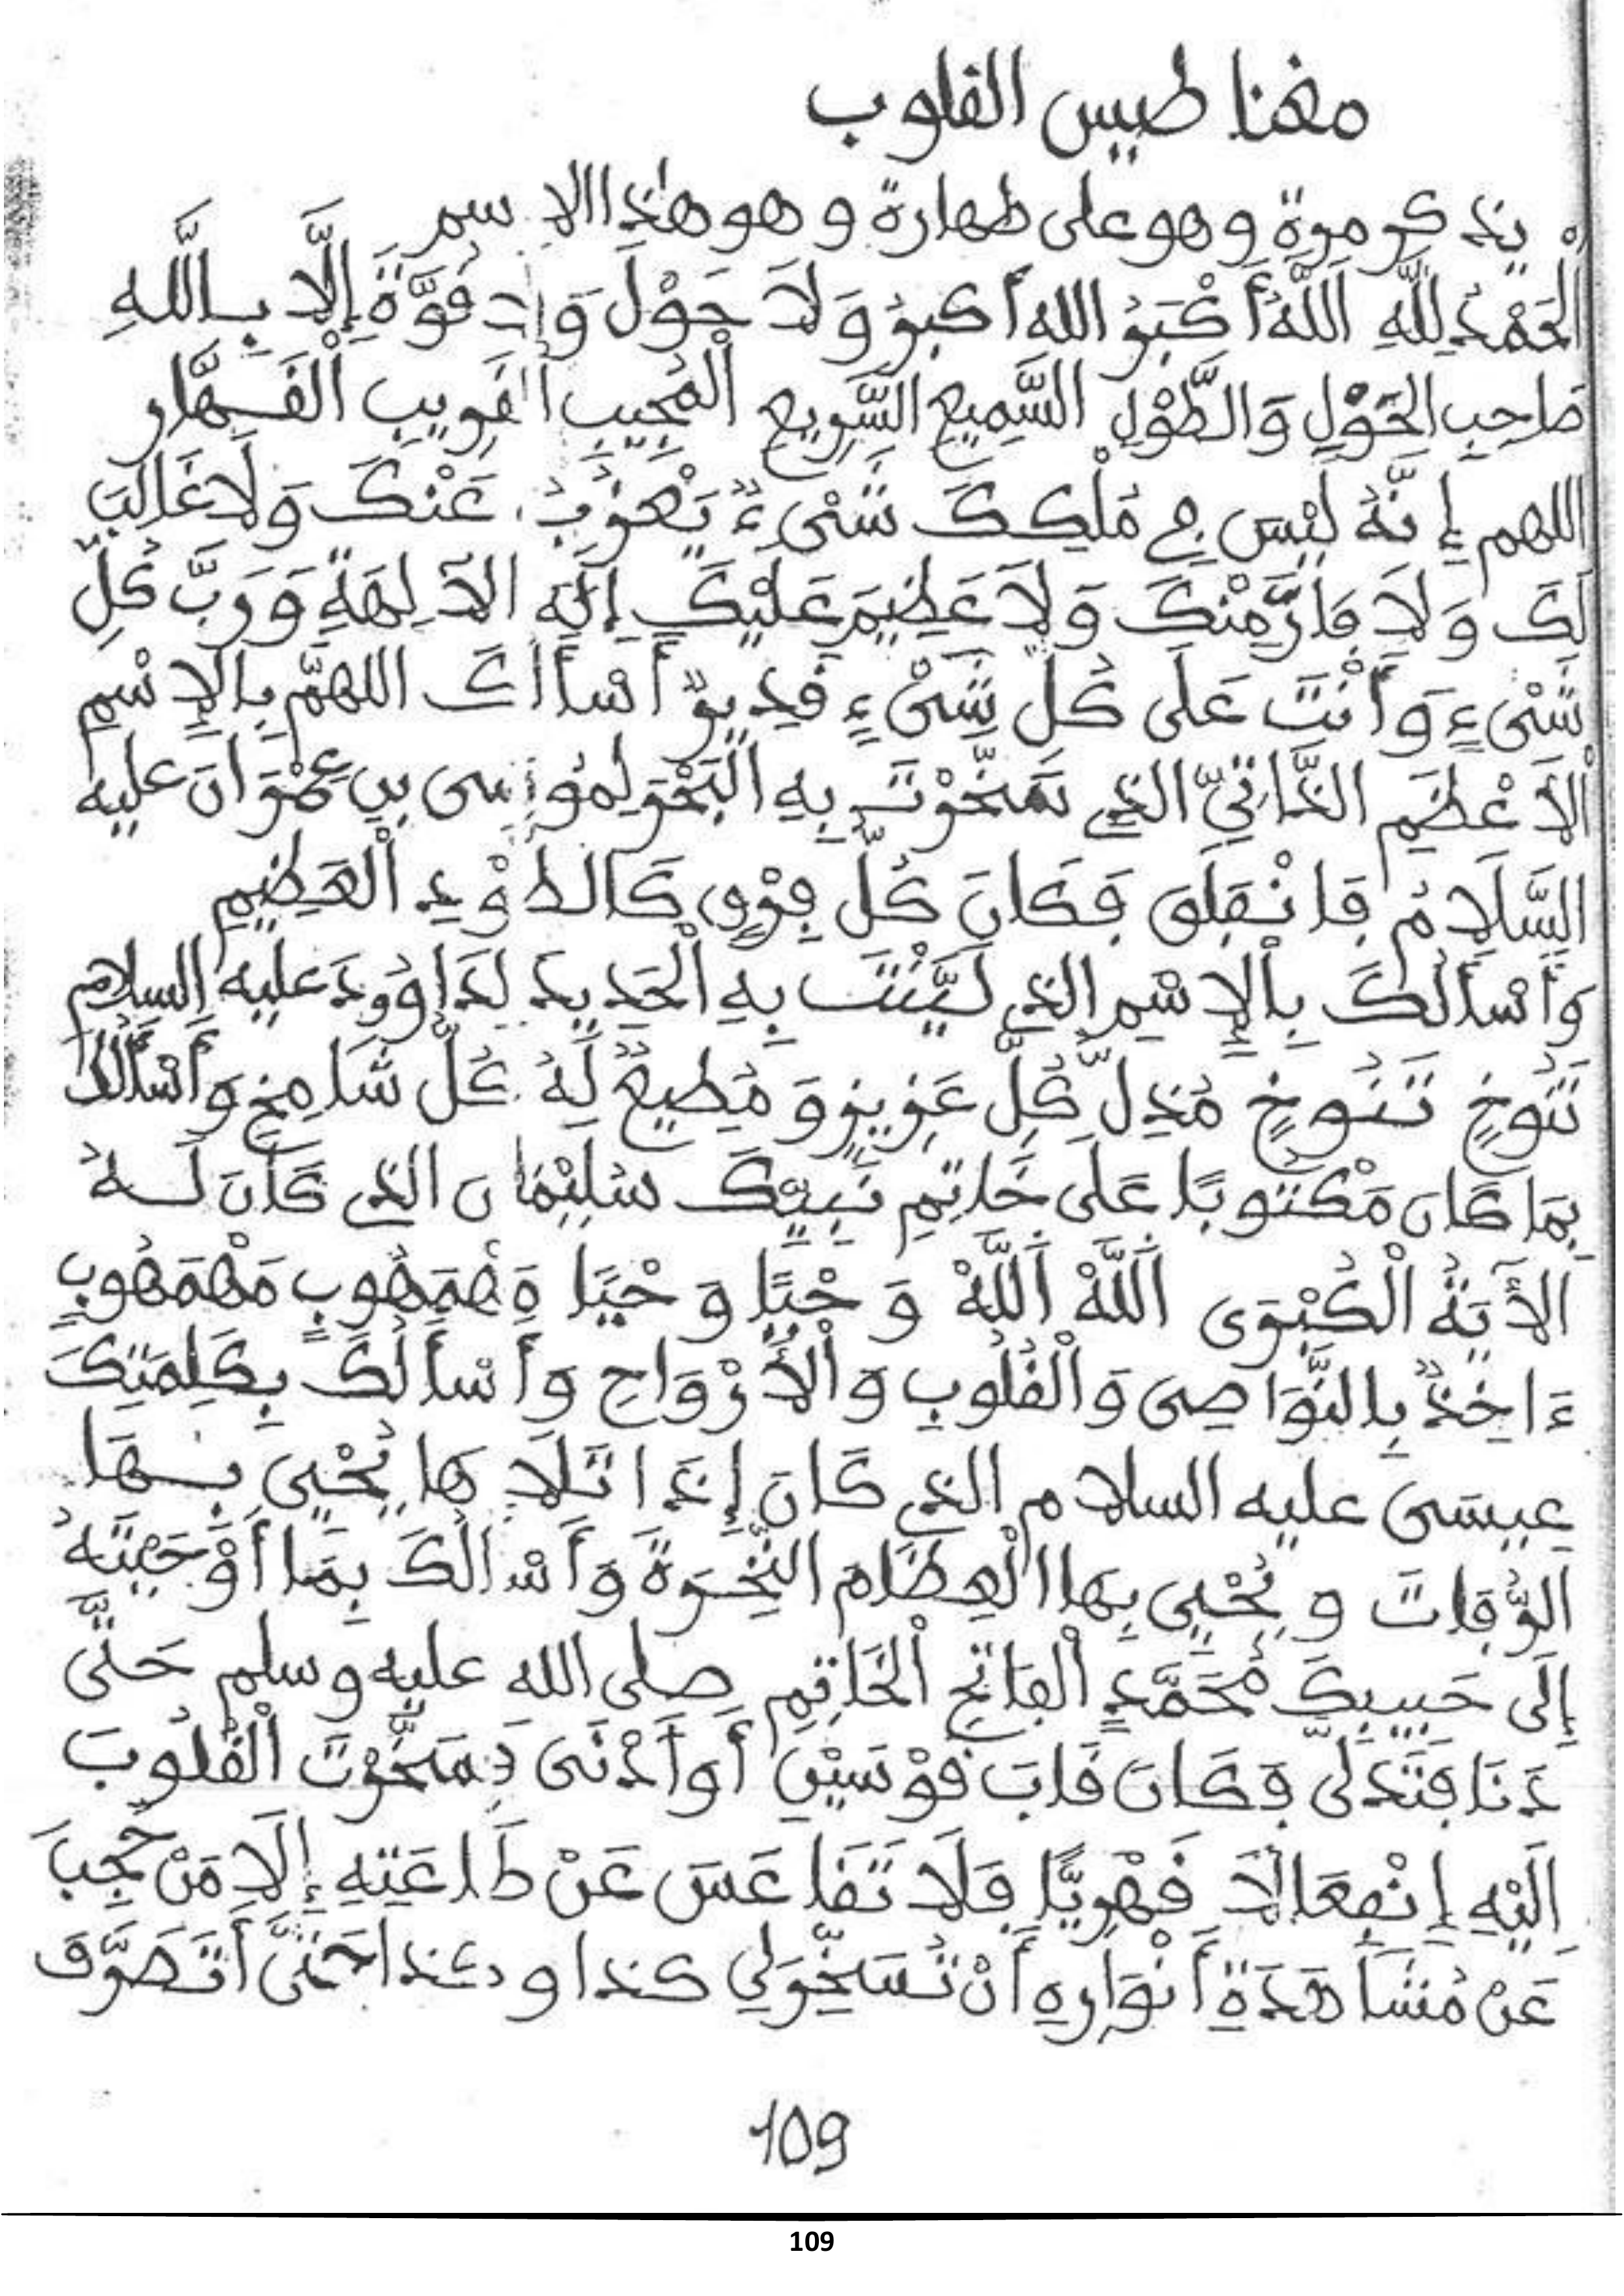 مغناطيس القلوب
يذكر مرة وهو على طهارة وهو هذا الاسم
اَلْحَمْدُ لِلَّهِ اَللَّهُ أَكْبَرُ الله أكبرُ وَلَا حَوْلَ وَلَا قُوَّةَ إِلَّا بِاللَّهِ
صَاحِبِ الحَوْلِ وَالطَّوْلِ السَّمِيعِ السَّرِيعِ الْمُجِيبِ الْقَرِيبِ الْقَهَّارِ
اللهم إِنَّهُ لَيْسَ فِي مُلْكِكَ شَيْءٌ يَعْزُبُ عَنْكَ وَلَا غَالِبَ
لَكَ وَلَا فَارَّ مِنْكَ وَلَا عَظِيمَ عَلَيْكَ إِلَهَ الآلِهَةِ وَرَبَّ كُلِّ
شَيْءٍ وَأَنْتَ عَلَى كُلِّ شَيْءٍ قَدِيرٌ أَسْأَلُكَ اللهمَّ بِالإِسْمِ
الْأَعْظَمِ الذَّاتِيِّ الذِي سَخَّرْتَ بِهِ الْبَحْرَ لِمُوسَى بنِ عِمْرَانَ عليه
السَّلَامُ فَانْفَلَقَ فَكَانَ كُلُّ فِرْقٍ كَالطَّوْدِ الْعَظِيمِ
وَأَسْأَلُكَ بِالْإِسْمِ الذِي لَيَّنْتَ بِهِ الْحَدِيدَ لِدَاوُودَ عليه السلام
تَنُوخٍ تَنُوخٍ مُذِلِّ كُلِّ عَزِيزٍ وَمُطِيعٌ لَهُ كُلُّ شَامِخٍ وَأَسْأَلُكَ
بِمَا كَانَ مَكْتُوبًا عَلَى خَاتِمِ نَبِيِّكَ سُلَيْمَانَ الذِي كَانَ لَهُ
الآيَةُ الْكُبْرَى اَللَّهْ اَللَّهْ وَحْيًا وَحْيًا مَهْمَهُوبٍ مَهْمَهُوبٍ
ءَاخِذٌ بِالنَّوَاصِي وَالْقُلُوبِ وَالْأَرْوَاحِ وَأَسْأَلُكَ بِكَلِمَتِكَ
عِيسَى عليه السلام الذي كَانَ إِذَا تَلَاهَا يُحْيِي بِهَا
الرُّفَاتَ وَيُحْيِي بِهَا الْعِظَامَ النَّخِرَةَ وَأَسْأَلُكَ بِمَا أَوْحَيْتَهُ
إِلَى حَبِيبِكَ مُحَمَّدٍ الْفَاتِحِ الْخَاتِمِ صلى الله عليه وسلم حَتَّى
دَنَا فَتَدَلَّى فَكَانَ قَابَ قَوْسَيْنِ أَوْ أَدْنَى فَسَخَّرْتَ الْقُلُوبَ
إِلَيْهِ إِنْفِعَالًا قَهْرِيًّا فَلَا تَقَاعَسَ عَنْ طَاعَتِهِ إِلَّا مَنْ حُجِبَ
عَنْ مُشَاهَدَةِ أَنْوَارِهِ أَنْ تُسَخِّرَ لِي كذا وكذا حَتَّى أَتَصَرَّفَ
109
109